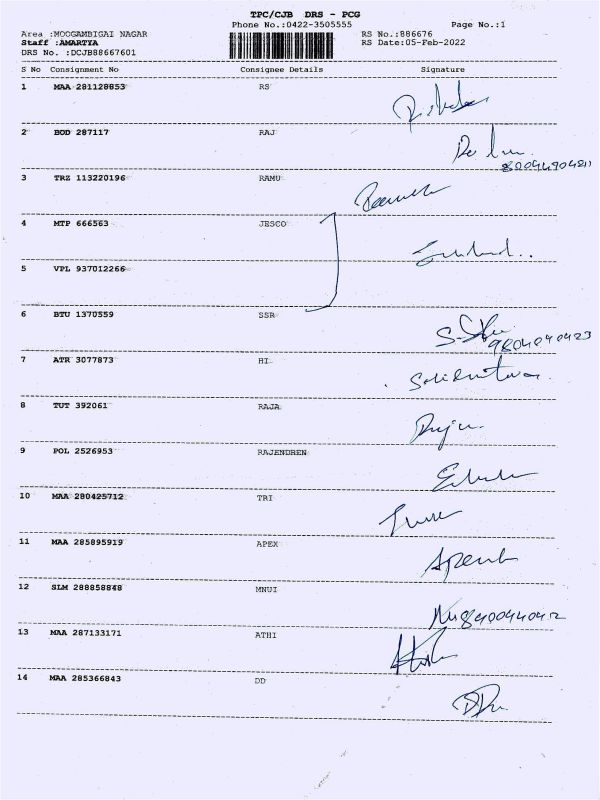 TPC/CJB DRS - PCG
Phone No.:0422-3505555 Page No.:1
Area :MOOGAMBIGAI NAGAR RS No.:886676
Staff :AMARTYA RS Date:05-Feb-2022
DRS No. :DCJB88667601
S No Consignment No Consignee Details Signature
1 MAA 281128853 RS
2 BOD 287117 RAJ
3 TRZ 113220196 RAMU
4 MTP 666563 JESCO
5 VPL 937012266
6 BTU 1370559 SSR
7 ATR 3077873 HI
8 TUT 392061 RAJA
9 POL 2526953 RAJENDREN
10 MAA 280425712 TRI
11 MAA 285895919 APEX
12 SLM 288858848 MNUI
13 MAA 287133171 ATHI
14 MAA 285366843 DD